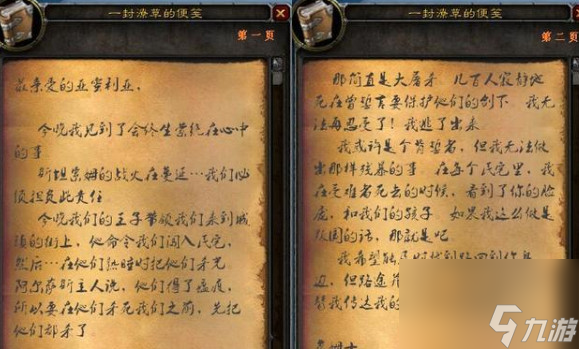 一封潦草的便笺
第一页
最亲爱的亚蜜利亚，
今晚我见到了会终生萦绕在心中
的事
斯坦索姆的战火在蔓延…我们必
须担负此责任
今晚我们的王子带领我们来到城
镇的街上，他命令我们闯入民宅，
然后…在他们熟睡时把他们杀光
阿尔萨斯主人说，他们得了瘟疫，
所以要在他们杀死我们之前，先把
他们都杀了
一封潦草的便笺
第二页
那简直是大屠杀 几百人寂静地
死在曾誓言要保护他们的剑下 我无
法再忍受了！我逃了出来
我或许是个背誓者，但我无法做
出那样残暴的事 在每个民宅里，我
在受难者死去的时候，看到了你的脸
庞，和我们的孩子 如果我这么做是
叛国的话，那就是吧
我希望能及时找到路回到你身
边，但路途
替我传达我的
九游